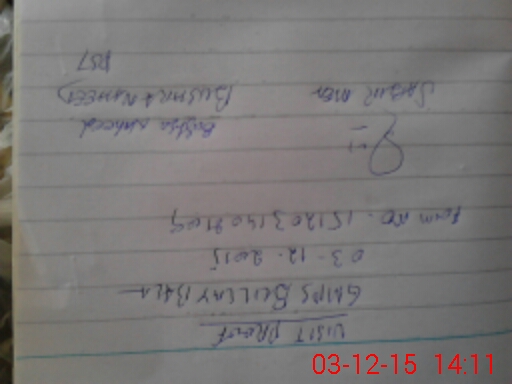 VISIT PROOF
GMPS BEILEAY BALA
03-12-2015
Form NO. 1512031409109
Bushra Naheed
SABIR MEA BUSHRA NAHEED
PST
03-12-15 14:11